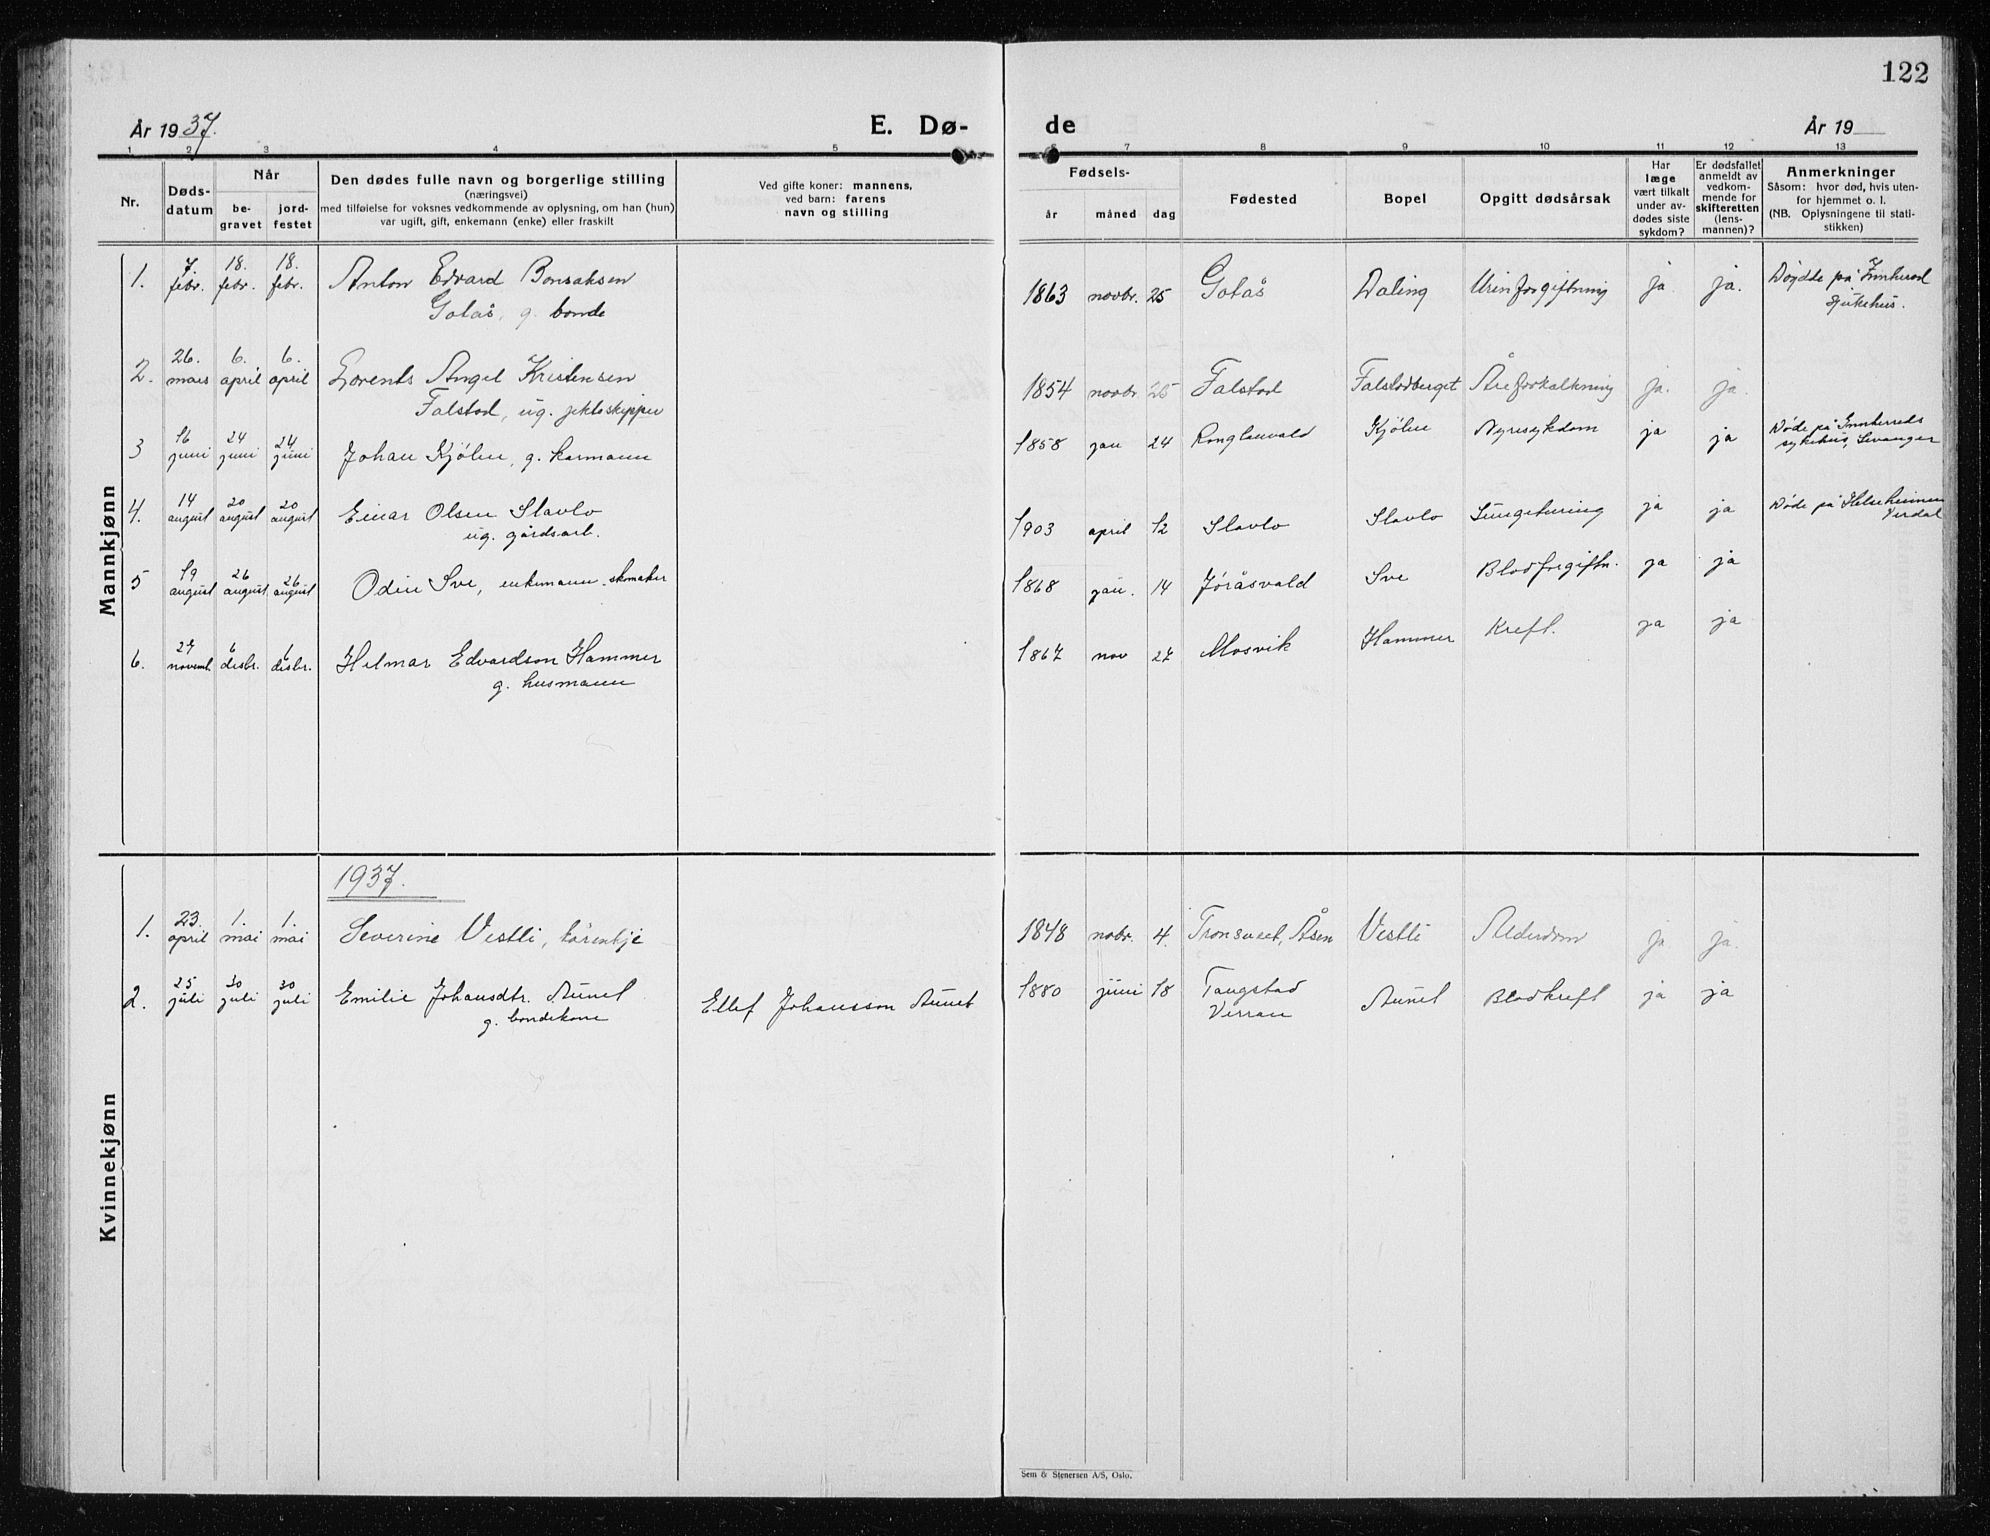 122
År 1937.
E. Dø-
de
År 19
1 2 3 4 5
6 7 8 9 10 11 12 13
Nr.
Døds-
datum
Når
be-
gravet
jord-
festet
Den dødes fulle navn og borgerlige stilling
(næringsvei)
med tilføielse for voksnes vedkommende av oplysning, om han (hun)
var ugift, gift, enkemann (enke) eller fraskilt
Ved gifte koner: mannens,
ved barn: farens
navn og stilling
Fødsels-
år
måned
dag
Fødested
Bopel
Opgitt dødsårsak
Har
læge
vært tilkalt
under av-
dødes siste
sykdom?
Er dødsfallet
anmeldt av
vedkom-
mende for
skifteretten
(lens-
mannen)?
Anmerkninger
Såsom: hvor død, hvis uten-
for hjemmet o. l.
(NB. Oplysningene til stati-
stikken)
Mannkjønn
1. 7. febr. 18. febr. 18. febr. Anton Edvard Bonsaksen
Gotås, g. bonde
1863 novbr. 25 Gotås Daling Urinforgiftning ja ja. Døydde på Innherad
sjukehus.
2. 26. mars 6. april 6. april Lorents Angel Kristensen
Falstad, ug. jekteskipper
1854 novbr 25 Falstad Falstadberget Åreforkalkning ja. ja.
3 16 juni 24 juni 24 juni Johan Kjølen, g. karmann
1858 jan 24 Ronglanvald Kjølen Nyresykdom ja ja Døde på Innherreds
sykehus, Levanger
4. 14 august 20 august 20 august Einar Olsen Slavlo
ug. gårdsarb.
1903 april 12 Slavlo Slavlo Lungeturing ja ja Døde på Helseheimen
Verdal
5 19 august 26 august 26 august Odin Sve, enkemann. skomaker
1868 jan. 14 Jøråsvald Sve Blodforgiftn. ja ja
6. 27 novemb 6 desbr. 6 desbr. Hilmar Edvardson Hammer
g. husmann
1867 nov 27 Mosvik Hammer Kreft. ja ja
Kvinnekjønn
1937.
1. 23. april 1. mai 1. mai Severine Vestli, kårenkje
1848 nobr. 4. Tronsveet, Åsen Vestli Alderdom ja ja.
2. 25 juli 30 juli 30 juli Emilie Johansdtr. Aunet
g. bondekone
Ellef Johansson Aunet
1880 juni 18 Tangstad
Verran
Aunet Blodkreft ja ja
Sem & Stenersen A/S, Oslo.